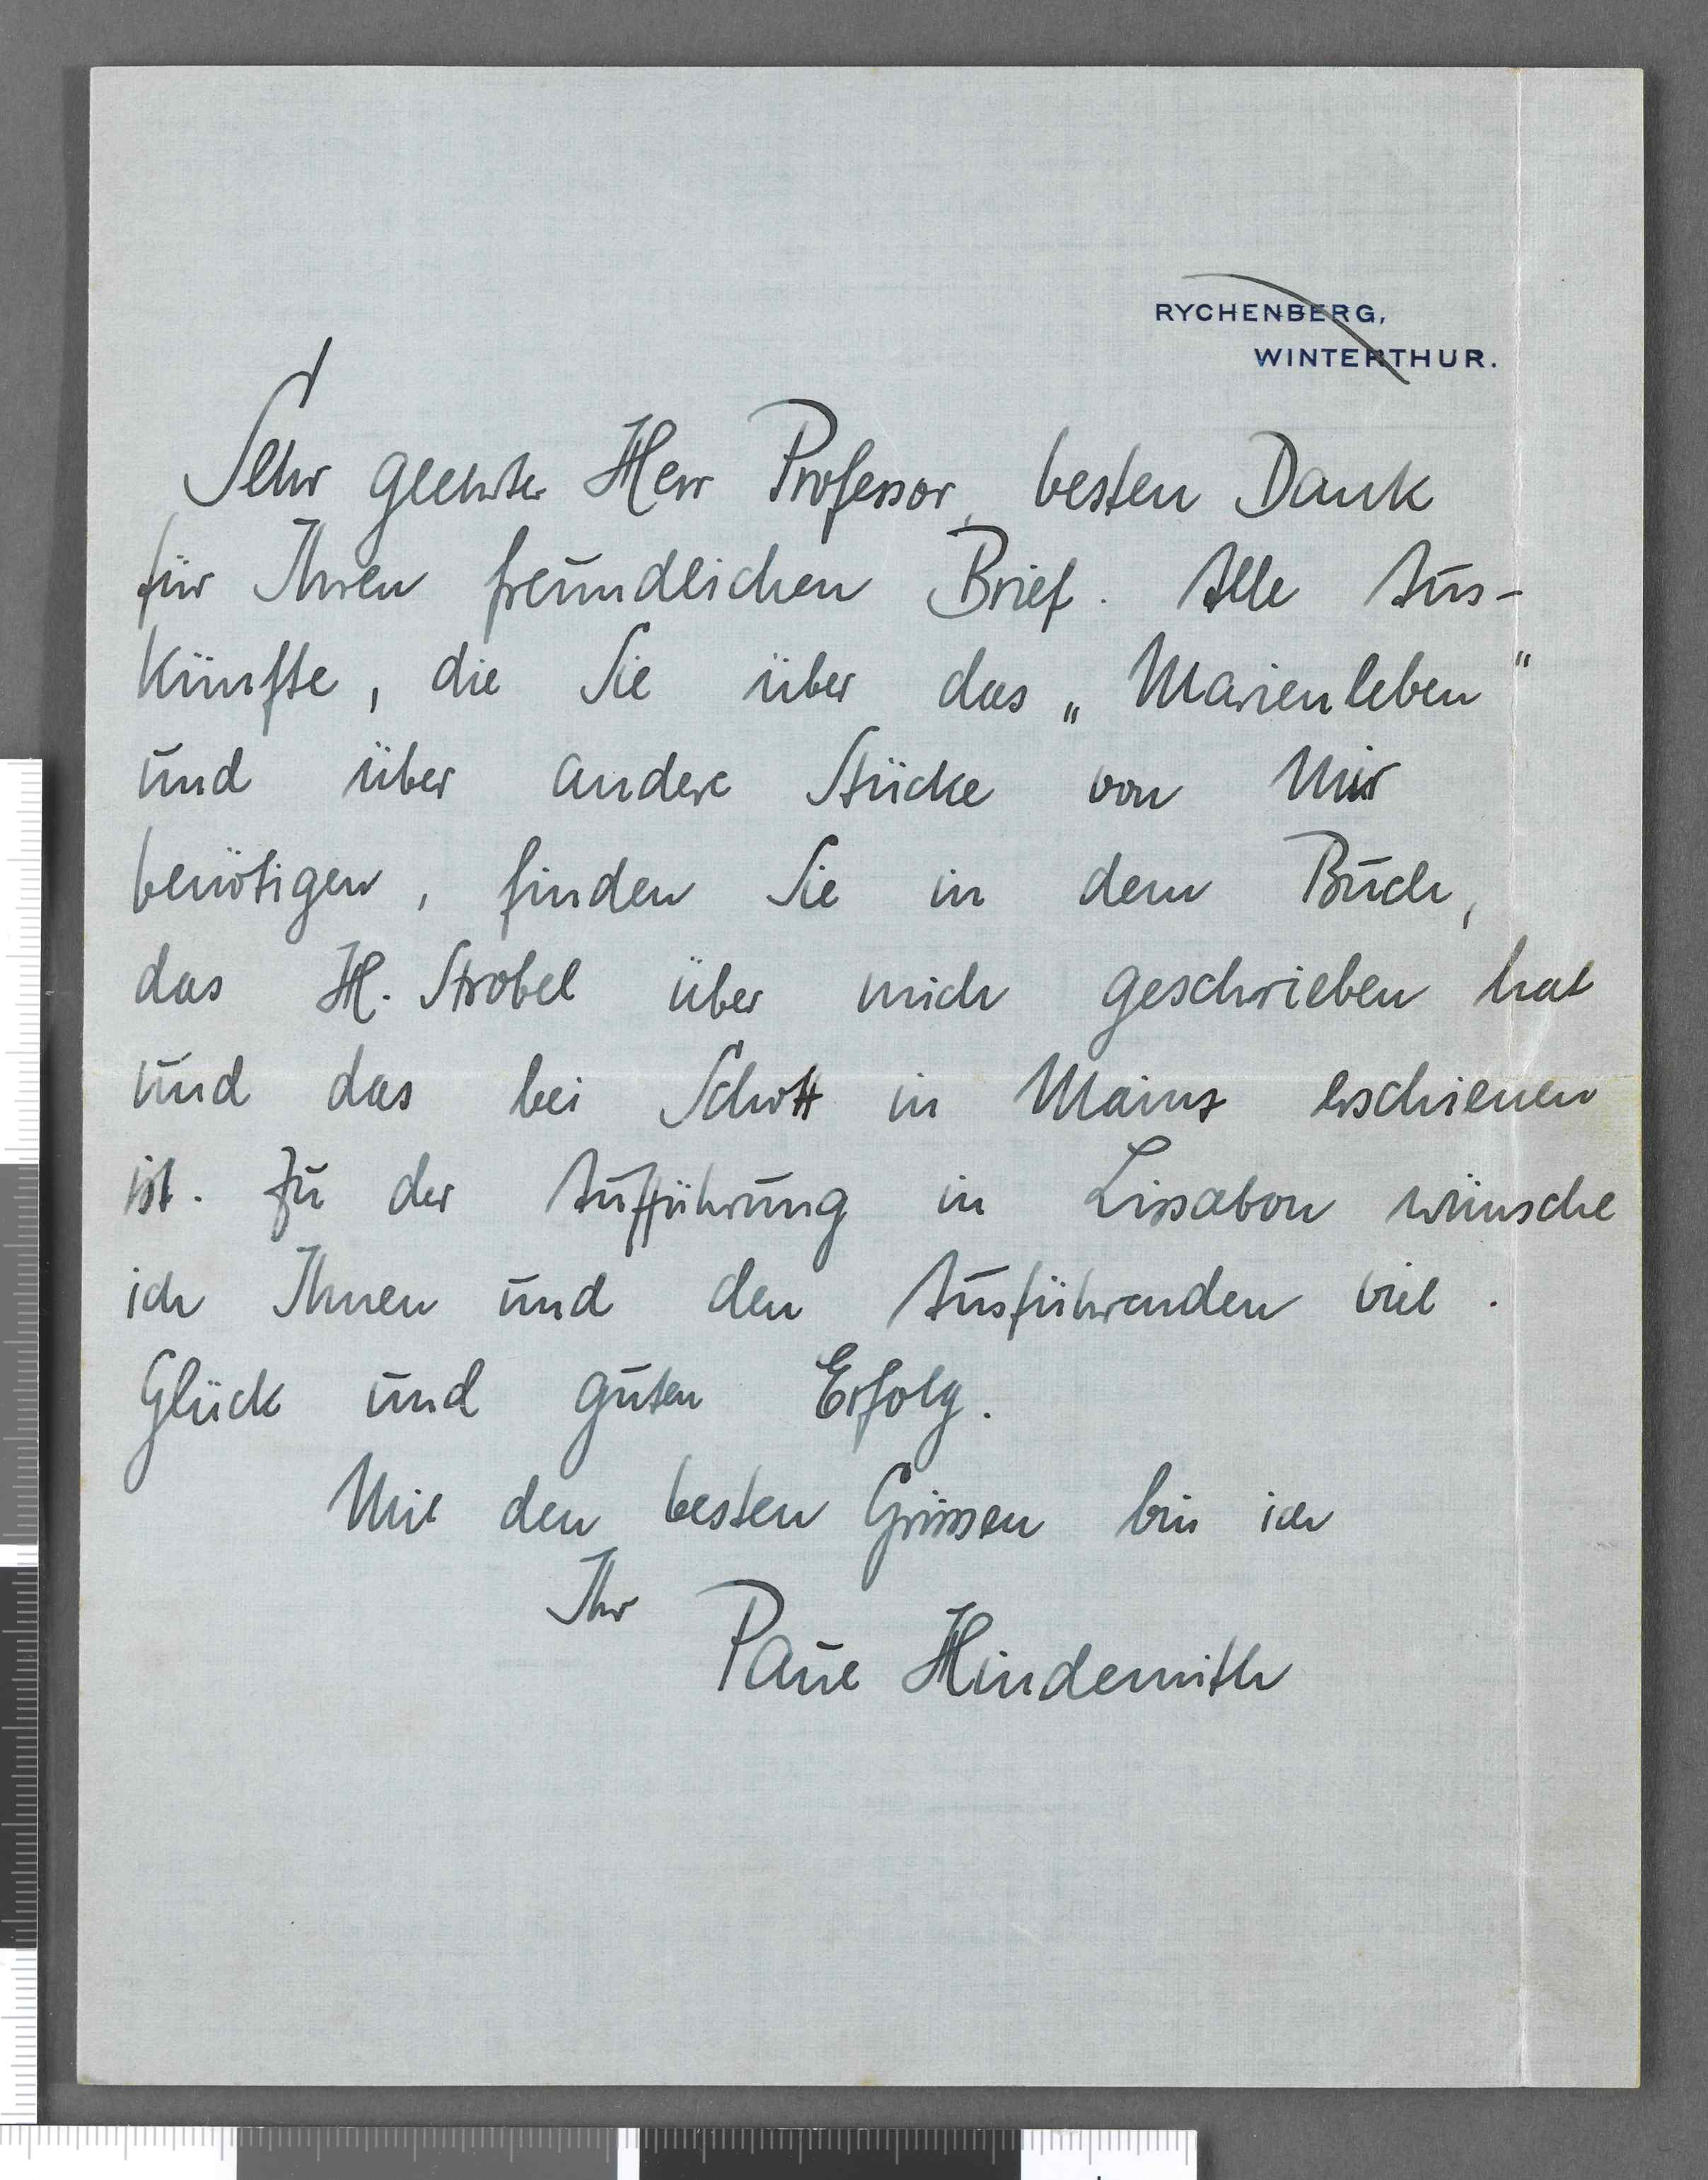 RYCHENBERG,
WINTERTHUR.
Sehr geehrter Herr Professor, besten Dank
für Ihren freundlichen Brief. Alle Aus-
künfte, die Sie über das „Marienleben“
und über andere Stücke von mir
benötigen, finden Sie in dem Buch,
das H. Strobel über mich geschrieben hat
und das bei Schott in Mainz erschienen
ist. Zu der Aufführung in Lissabon wünsche
ich Ihnen und den Ausführenden viel
Glück und guten Erfolg.
Mit den besten Grüssen bin ich
Ihr
Paul Hindemith